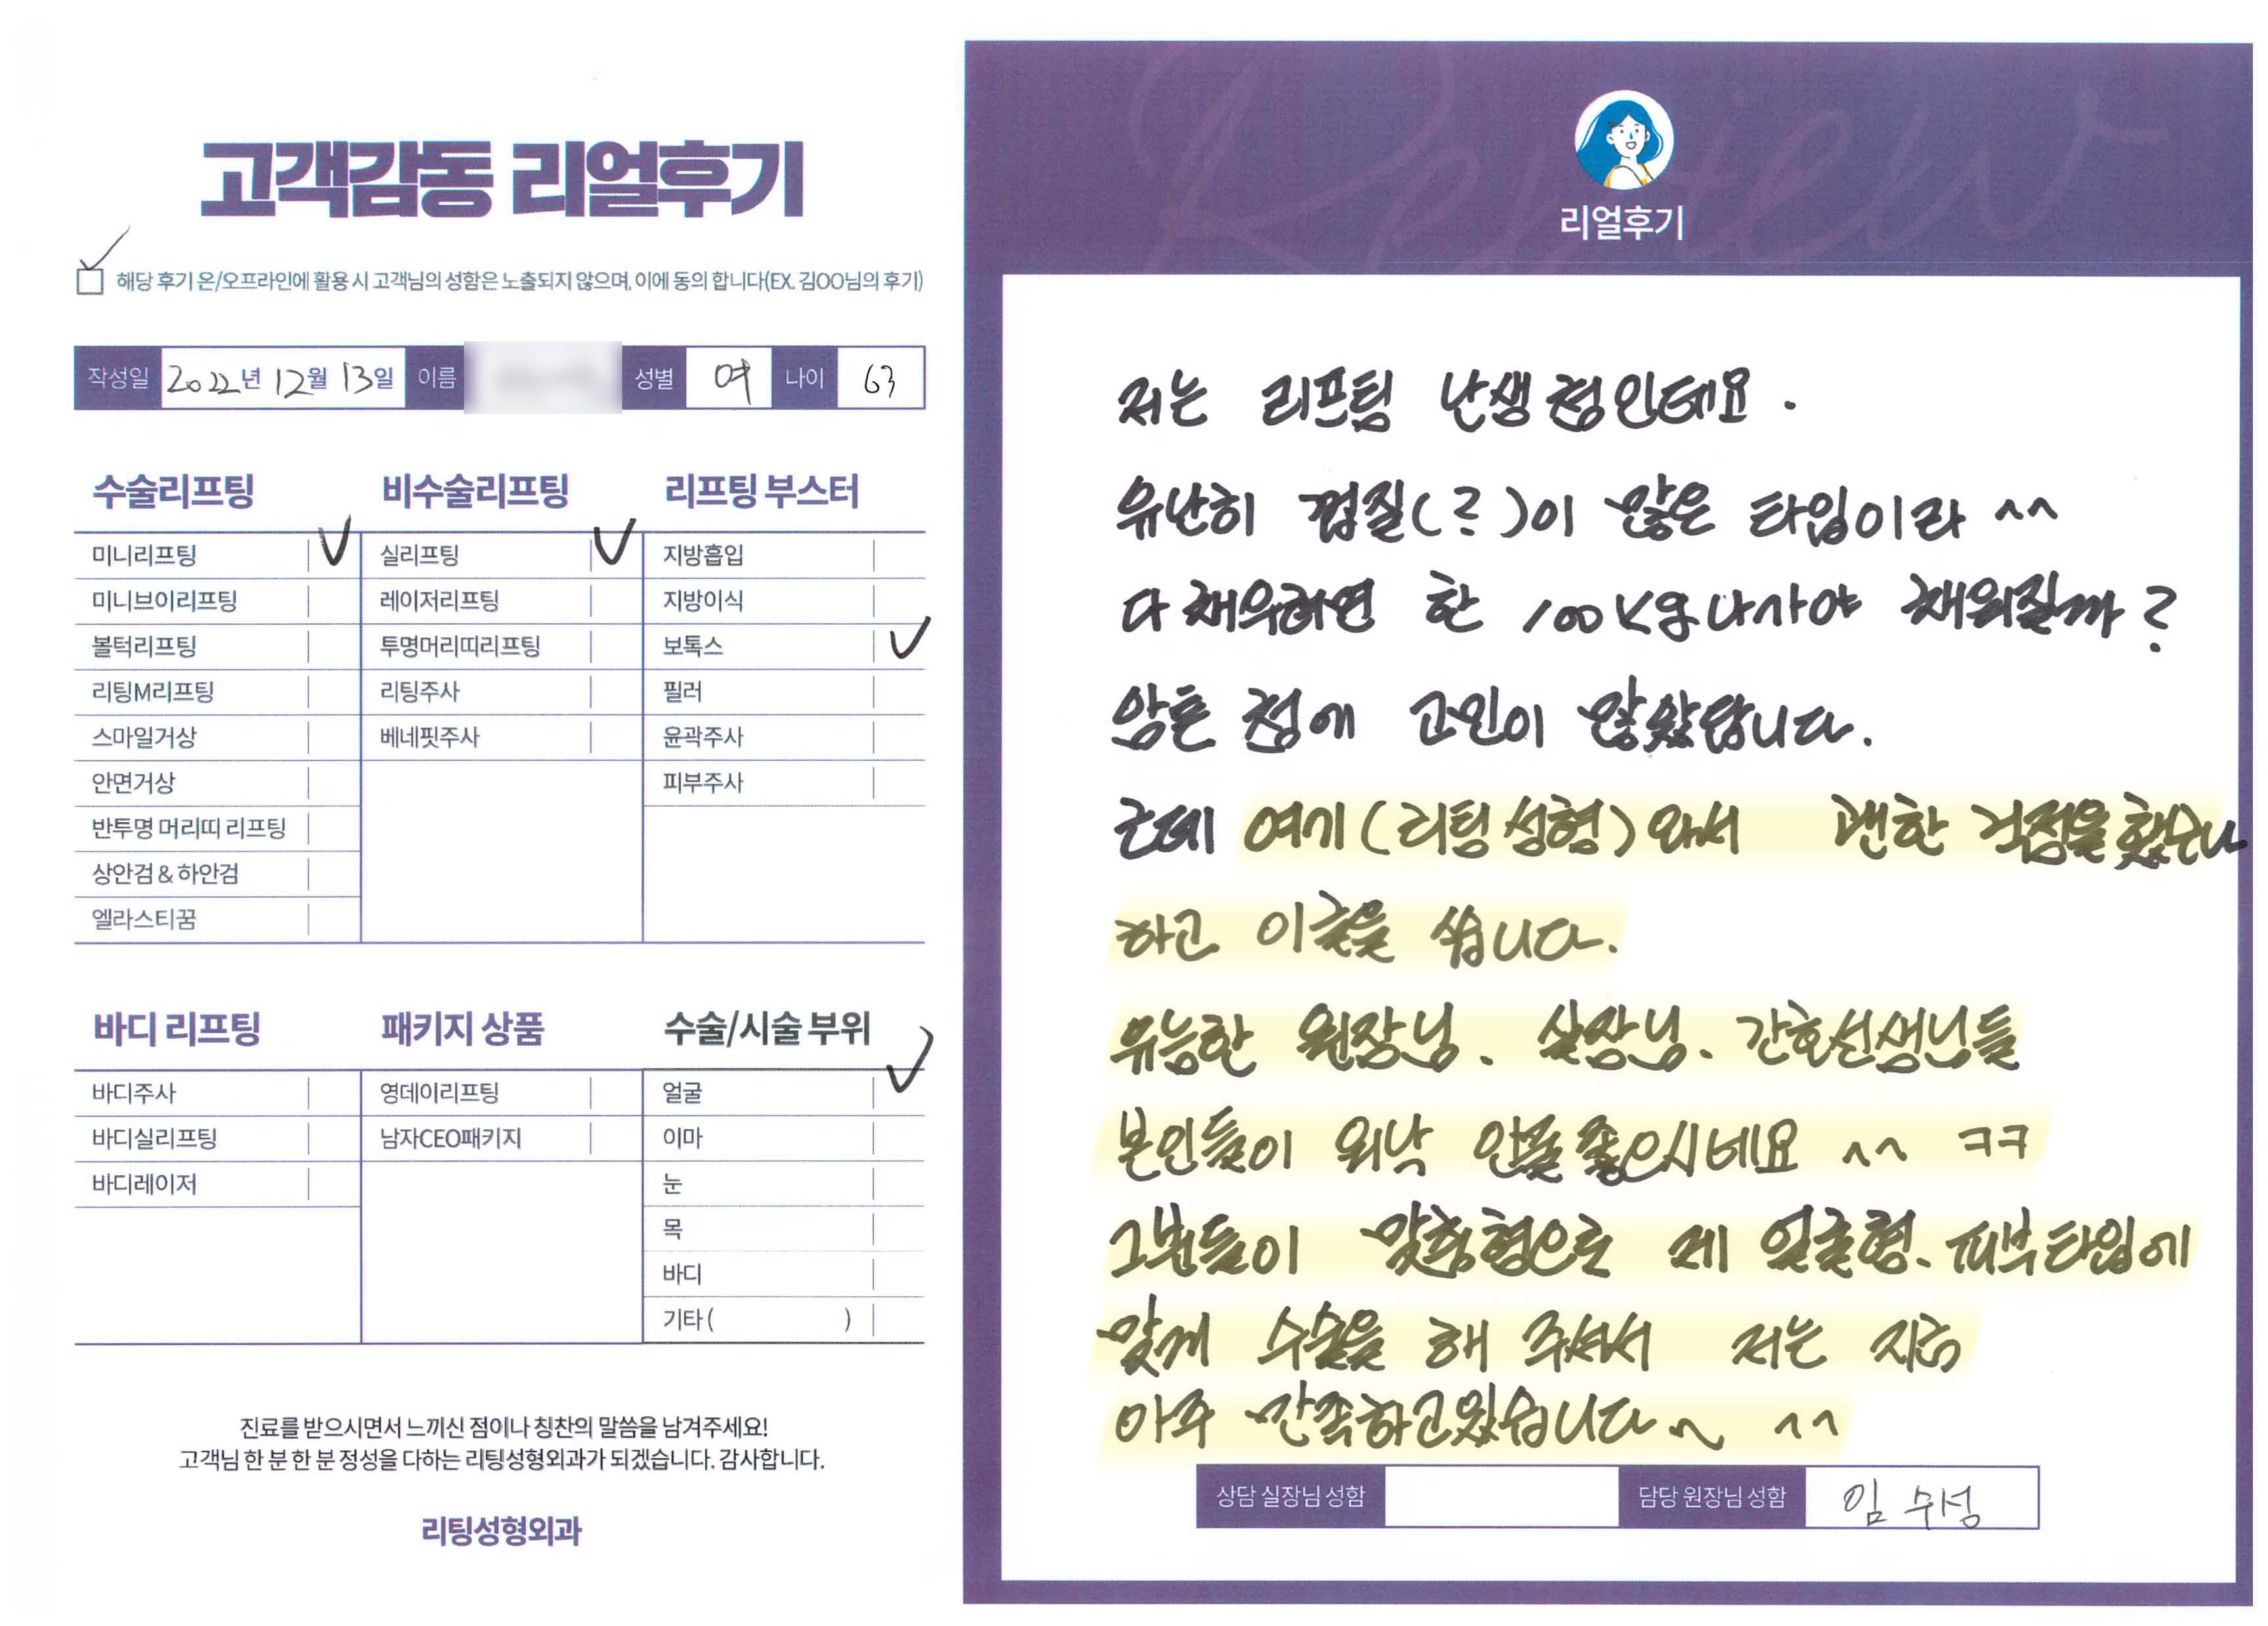 고객감동 리얼후기
해당 후기 온/오프라인에 활용 시 고객님의 성함은 노출되지 않으며, 이에 동의 합니다(EX. 김OO님의 후기)
작성일 2022년 12월 13일 이름 성별 여 나이 63
수술리프팅
미니리프팅
미니브이리프팅
볼턱리프팅
리팅M리프팅
스마일거상
안면거상
반투명 머리띠 리프팅
상안검 & 하안검
엘라스티꿈
비수술리프팅
실리프팅
레이저리프팅
투명머리띠리프팅
리팅주사
베네핏주사
리프팅 부스터
지방흡입
지방이식
보톡스
필러
윤곽주사
피부주사
바디 리프팅
바디주사
바디실리프팅
바디레이저
패키지 상품
영데이리프팅
남자CEO패키지
수술/시술 부위
얼굴
이마
눈
목
바디
기타 ( )
진료를 받으시면서 느끼신 점이나 칭찬의 말씀을 남겨주세요!
고객님 한 분 한 분 정성을 다하는 리팅성형외과가 되겠습니다. 감사합니다.
리팅성형외과
Review
리얼후기
저는 리프팅 난생 첨인데요.
유난히 껍질(?)이 많은 타입이라 ^^
다 채우려면 한 100kg 나가야 채워질까?
암튼 첨에 고민이 많았답니다.
근데 여기(리팅성형)와서 괜한 걱정을 했구나
하고 이글을 씁니다.
유능한 원장님. 실장님. 간호선생님들
본인들이 워낙 인물 좋으시네요 ^^ ㅋㅋ
그분들이 맞춤형으로 제 얼굴형. 피부타입에
맞게 수술을 해 주셔서 저는 지금
아주 만족하고있습니다~ ^^
상담 실장님 성함 담당 원장님 성함 임 수성